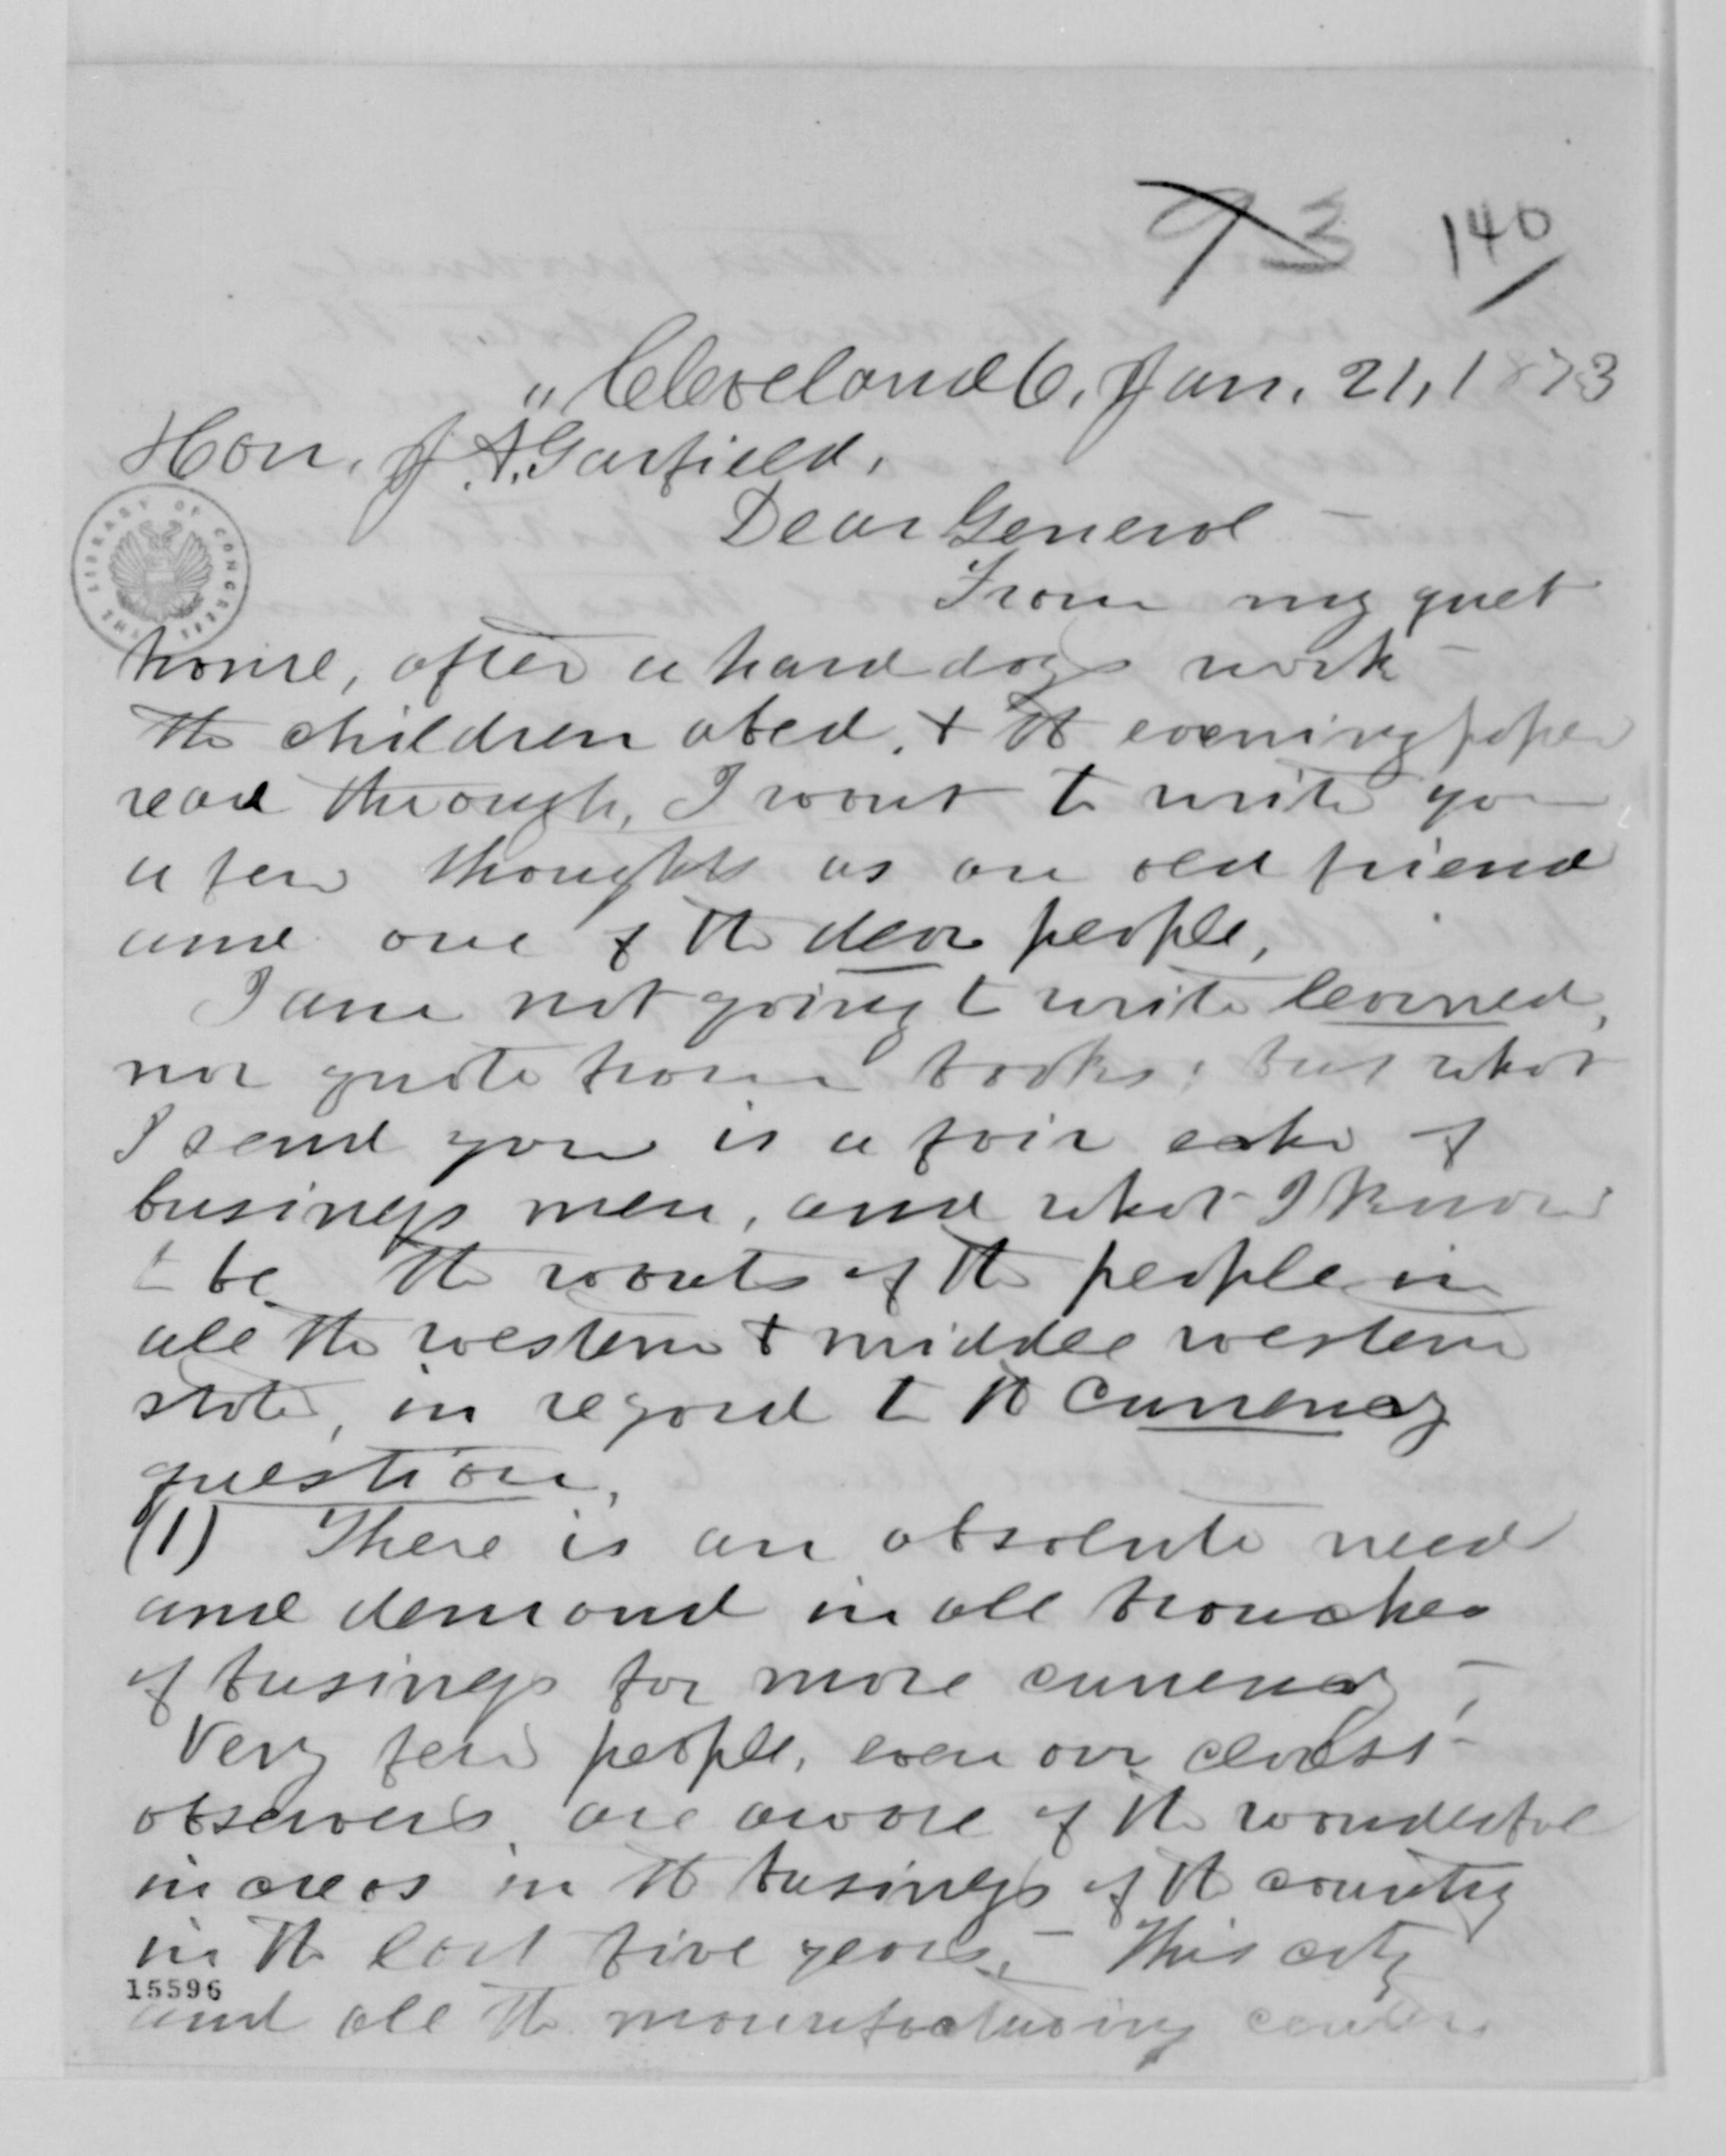 93 140
" Cleveland O. Jan. 21, 1873
Hon. J. A. Garfield,
Dear General -
From my quiet
THE LIBRARY OF CONGRESS
home, after a hard days work -
the children abed, & the evening paper
read through, I want to write you
a few thoughts as an old friend
and one of the dear people,
I am not going to write learned,
nor quote from books; but what
I send you is a fair echo of
business men, and what I know
to be the wants of the people in
all the western & middle western
states, in regard to the currency
question.
(1) There is an absolute need
and demand in all branches
of business for more currency, -
Very few people, even our closest
observers, are aware of the wonderful
increas in the business of the country
in the last five years. - This city
15596
and all the manufacturing centers